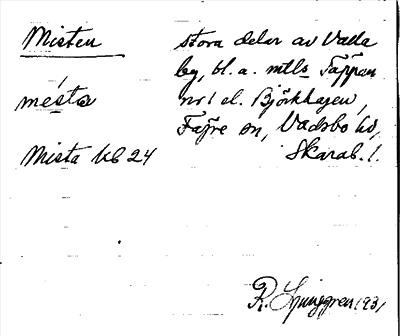 Misten
stora delar av Valla
by, bl. a. mtls Täppan
mésta
nr 1 el. Björkhagen,
Fägre sn, Vadsbo hd,
Mista kb 24
Skarab. l.
R. Ljunggren 1931